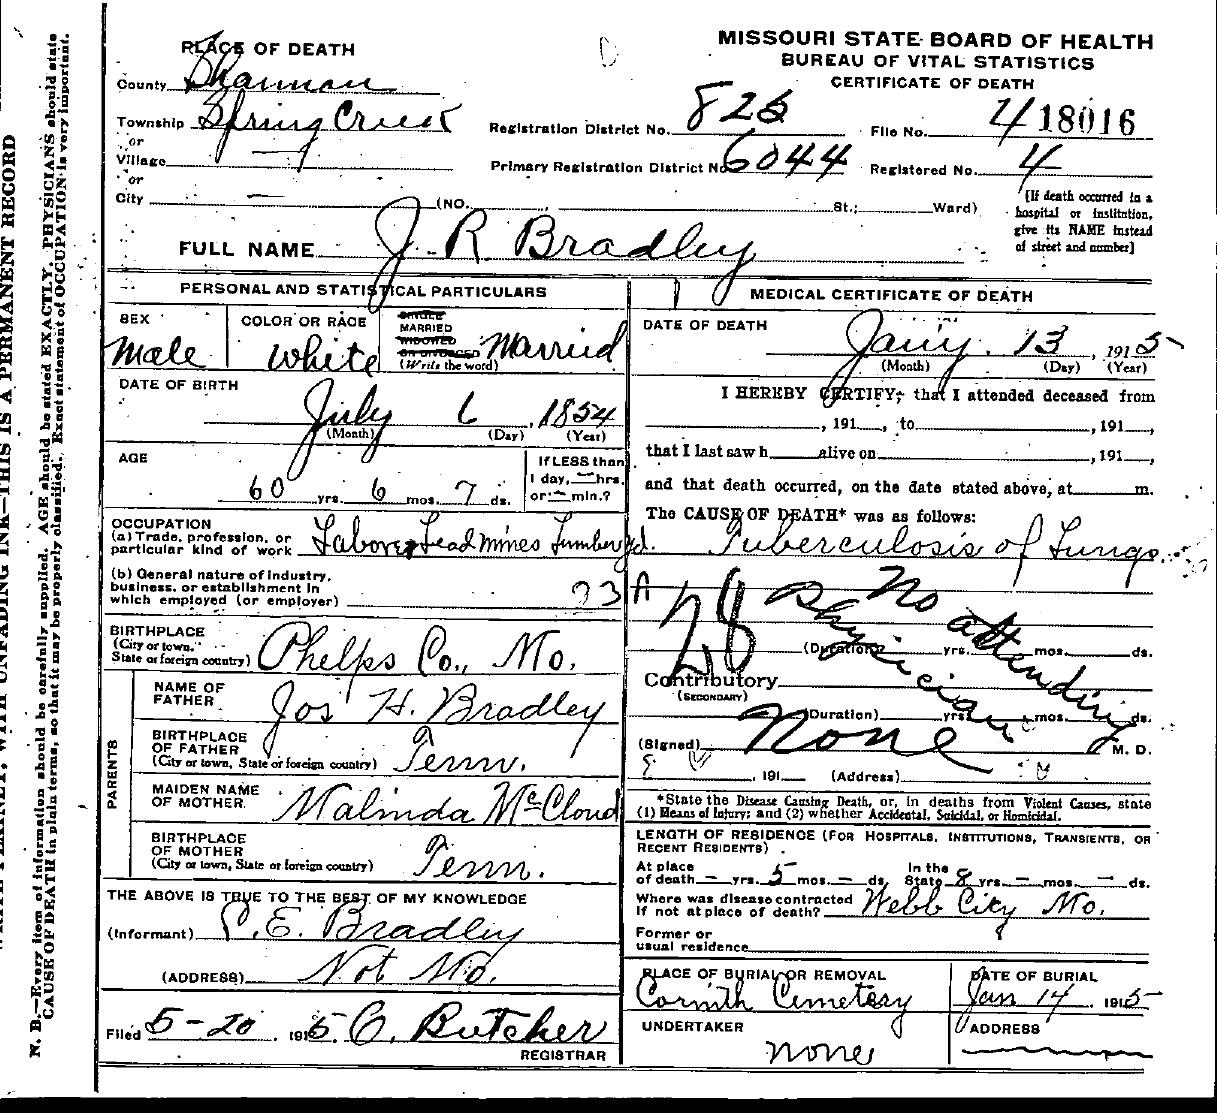 MISSOURI STATE BOARD OF HEALTH
BUREAU OF VITAL STATISTICS
CERTIFICATE OF DEATH
PLACE OF DEATH
County Shannon
Township Spring Creek
or
Village
or
City
Registration District No. 825
File No. 18016
Primary Registration District No. 6044
Registered No. 4
(NO. St.; Ward)
[If death occurred in a
hospital or institution,
give its NAME instead
of street and number]
FULL NAME J. R Bradley
PERSONAL AND STATISTICAL PARTICULARS
SEX
Male
COLOR OR RACE
White
SINGLE
MARRIED
WIDOWED
OR DIVORCED
(Write the word)
Married
DATE OF BIRTH
July 6, 1854
(Month) (Day) (Year)
AGE
60 yrs. 6 mos. 7 ds.
If LESS than
1 day, — hrs.
or — min.?
OCCUPATION
(a) Trade, profession, or
particular kind of work Labor Lead mines Lumber yd.
(b) General nature of industry,
business, or establishment in
which employed (or employer) 33
BIRTHPLACE
(City or town,
State or foreign country) Phelps Co., Mo.
PARENTS
NAME OF
FATHER Jos H. Bradley
BIRTHPLACE
OF FATHER
(City or town, State or foreign country) Tenn.
MAIDEN NAME
OF MOTHER Malinda McCloud
BIRTHPLACE
OF MOTHER
(City or town, State or foreign country) Tenn.
THE ABOVE IS TRUE TO THE BEST OF MY KNOWLEDGE
(Informant) C. E. Bradley
(ADDRESS) Not Mo.
Filed 5-20, 1915 C. Butcher
REGISTRAR
MEDICAL CERTIFICATE OF DEATH
DATE OF DEATH
Jany. 13, 1915
(Month) (Day) (Year)
I HEREBY CERTIFY, that I attended deceased from
, 191 , to , 191 ,
that I last saw h alive on , 191 ,
and that death occurred, on the date stated above, at m.
The CAUSE OF DEATH* was as follows:
Tuberculosis of Lungs
28
No attending
Physician
(Duration) yrs. mos. ds.
Contributory
(SECONDARY)
(Duration) yrs. mos. ds.
(Signed) None M. D.
, 191 (Address)
*State the Disease Causing Death, or, in deaths from Violent Causes, state
(1) Means of Injury; and (2) whether Accidental, Suicidal, or Homicidal.
LENGTH OF RESIDENCE (FOR HOSPITALS, INSTITUTIONS, TRANSIENTS, OR
RECENT RESIDENTS)
At place
of death — yrs. 5 mos. — ds.
In the
State 8 yrs. — mos. — ds.
Where was disease contracted
if not at place of death? Webb City Mo.
Former or
usual residence
PLACE OF BURIAL OR REMOVAL
Cornith Cemetery
DATE OF BURIAL
Jan 14 1915
UNDERTAKER
none
ADDRESS
N. B.—Every item of information should be carefully supplied. AGE should be stated EXACTLY. PHYSICIANS should state
CAUSE OF DEATH in plain terms, so that it may be properly classified. Exact statement of OCCUPATION is very important.
WITH UNFADING INK—THIS IS A PERMANENT RECORD